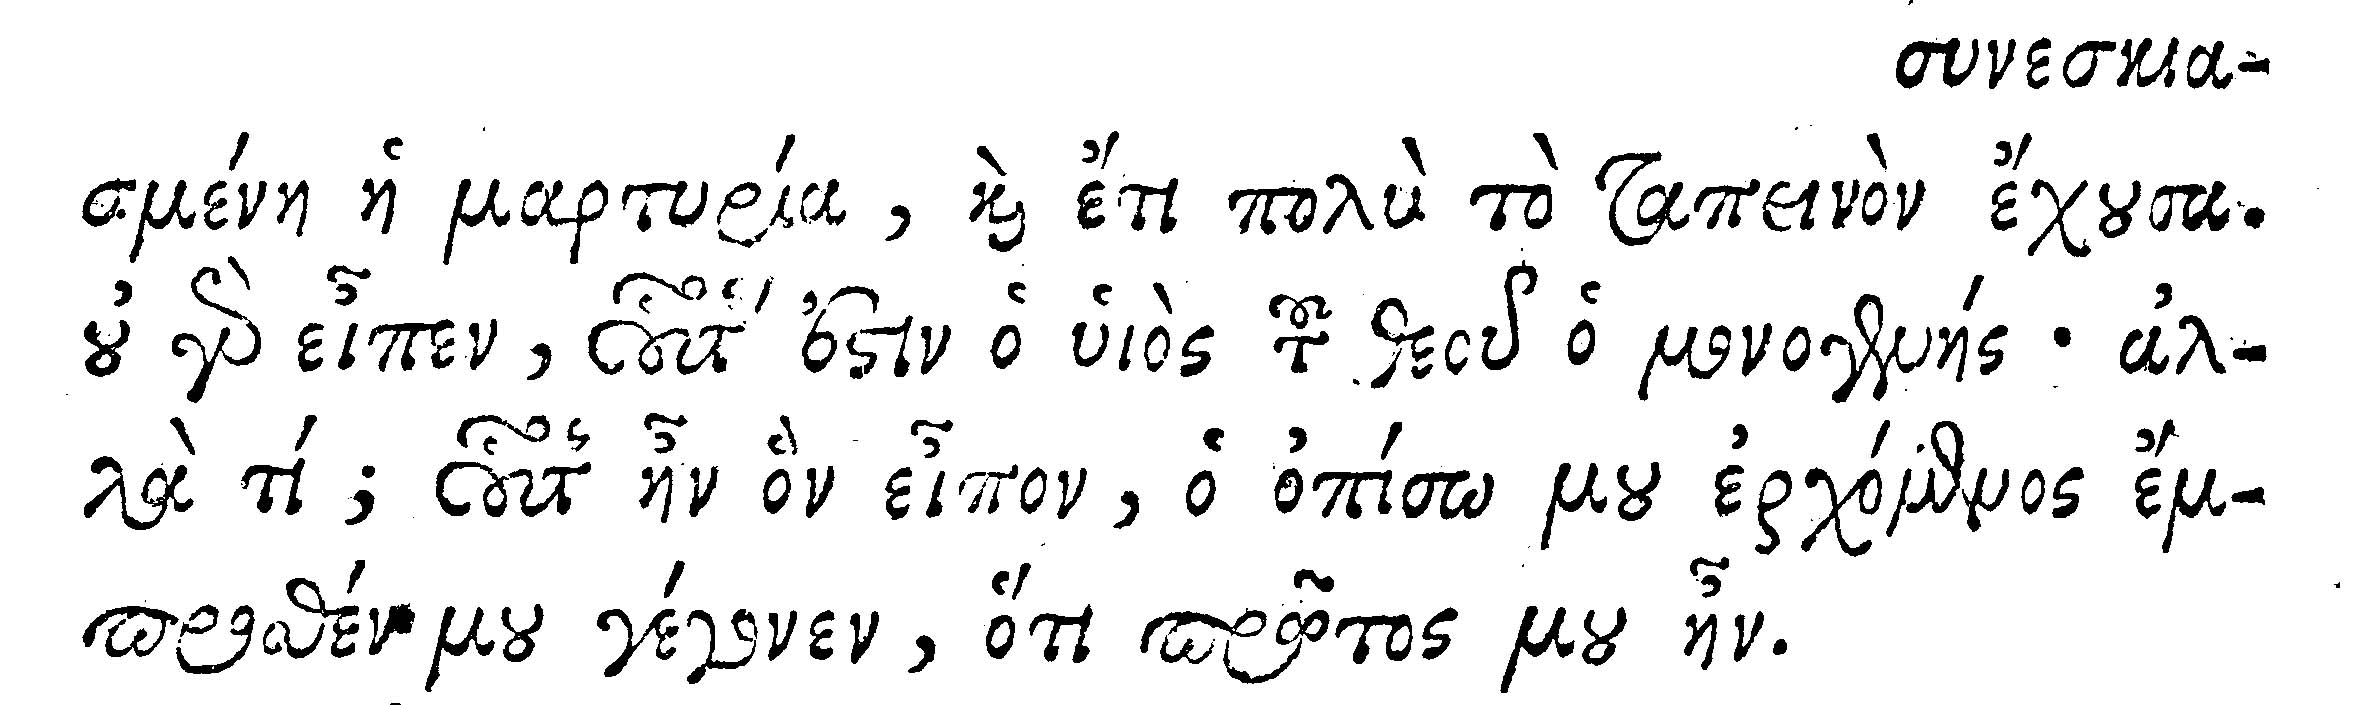 συνεσκια-
σμένη ἡ μαρτυρία, καὶ ἔτι πολὺ τὸ ταπεινὸν ἔχουσα.
οὐ γὰρ εἶπεν, οὗτός ἐστιν ὁ υἱὸς τοῦ θεοῦ ὁ μονογενής · ἀλ-
λὰ τί; οὗτος ἦν ὃν εἶπον, ὁ ὀπίσω μου ἐρχόμενος ἔμ-
προσθέν μου γέγονεν, ὅτι πρῶτος μου ἦν.